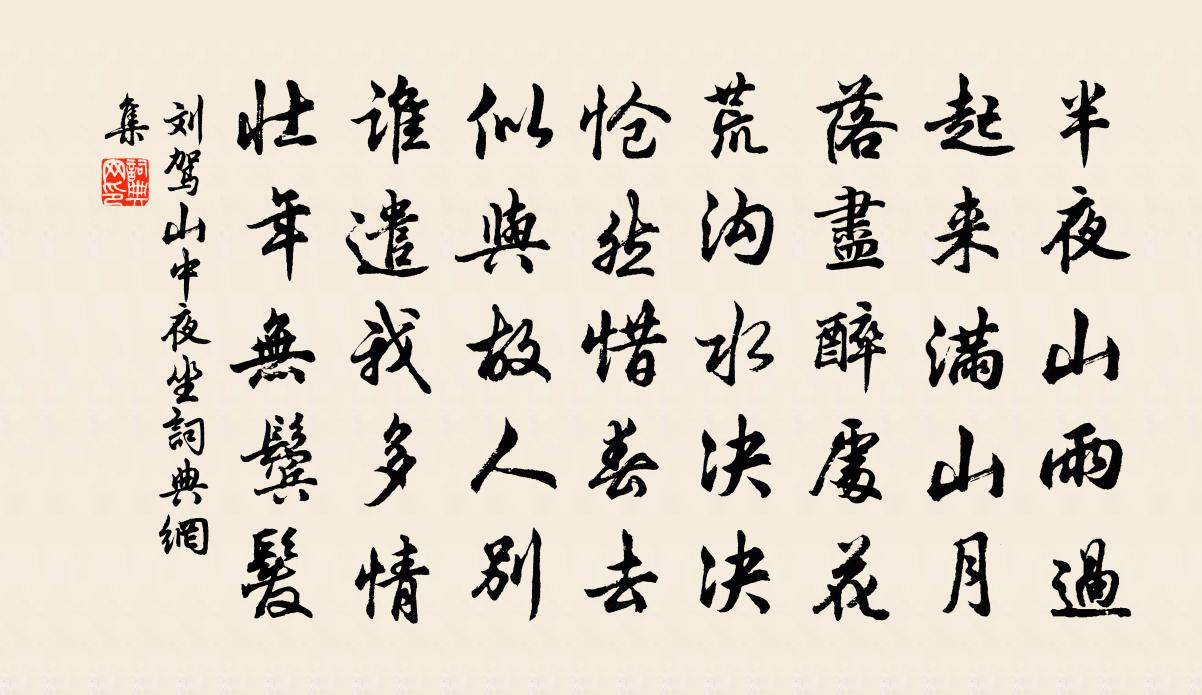 半夜山雨過
起来滿山月
落盡醉處花
荒沟水决决
怆然惜春去
似與故人别
谁遣我多情
壮年無鬓髮
刘驾山中夜坐詞典網
集
詞典網印